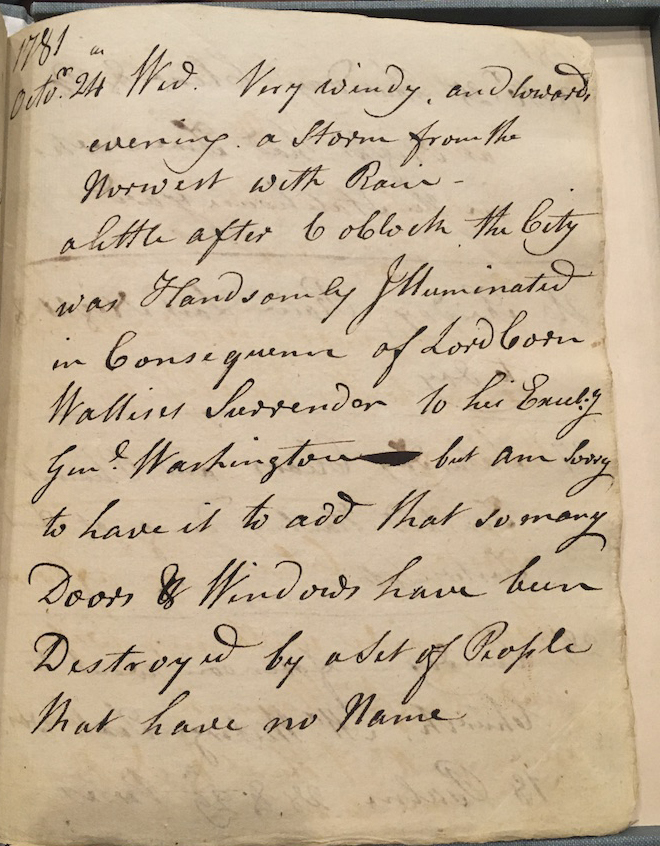 1781
Octor. 24 Wed. Very windy, and towards
evening. a Storm from the
Norwest with Rain -
a little after 6 oClock the City
was Handsomly Illuminated
in Consequenn of Lord Corn
Wallises Surrender to his Excely
Genl. Washington — but am sorry
to have it to add that so many
Doors & Windows have been
Destroyed by a Set of People
that have no Name